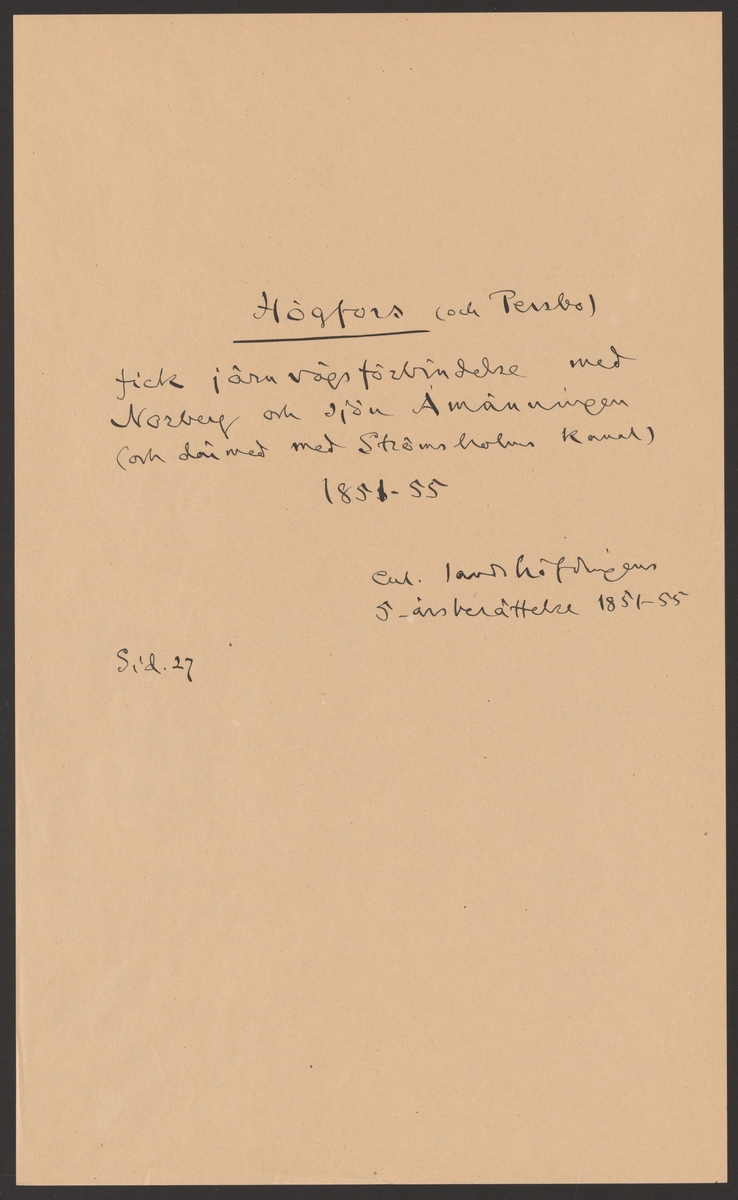 Högfors (och Persbo)
fick järnvägsförbindelse med
Norberg och sjön Åmänningen
(och därmed med Strömsholms kanal)
1851-55
enl. landshöfdingens
5-årsberättelse 1851-55
Sid. 27